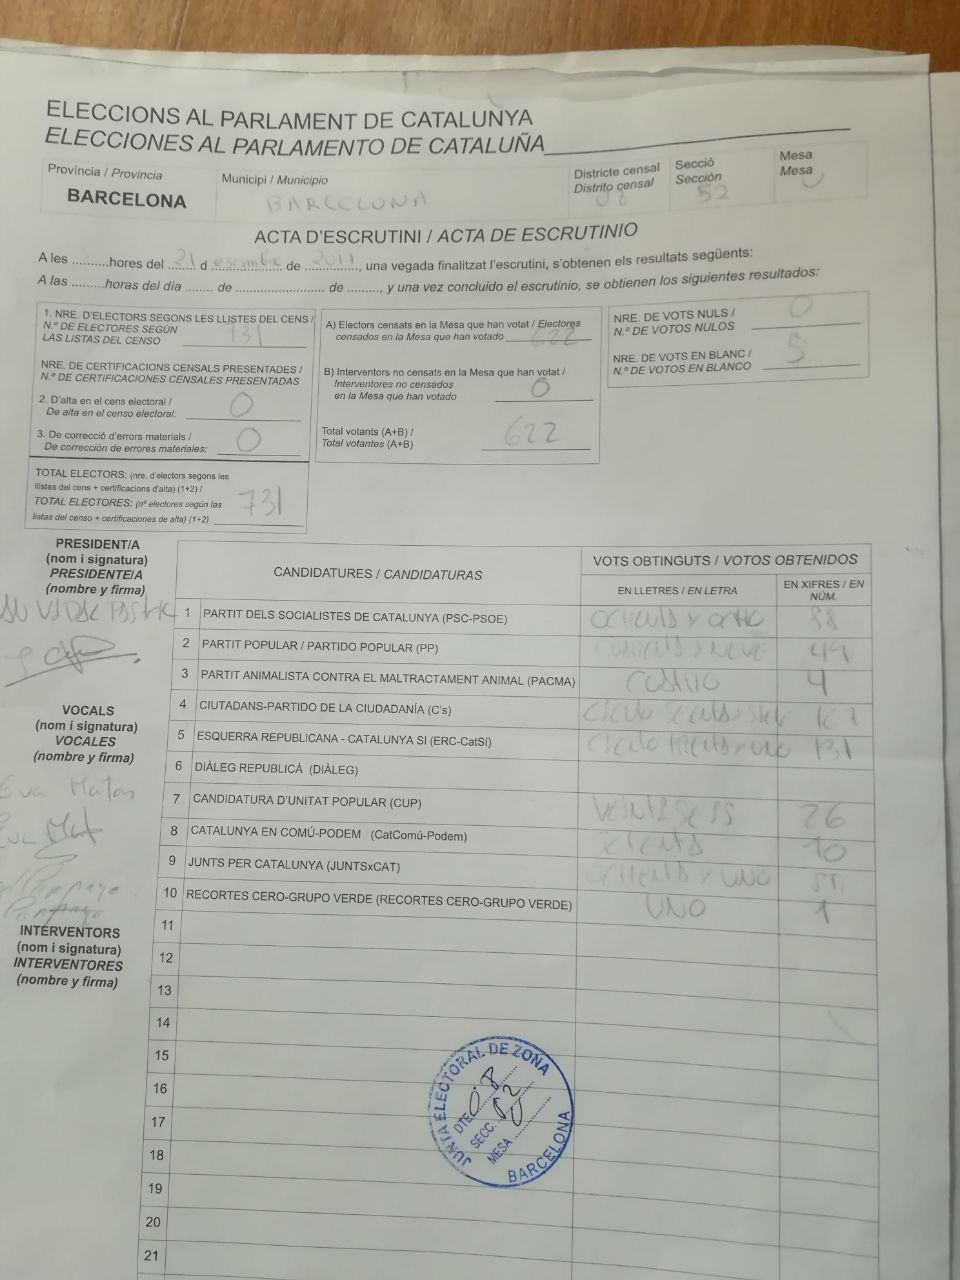 ELECCIONS AL PARLAMENT DE CATALUNYA
ELECCIONES AL PARLAMENTO DE CATALUÑA
Província / Provincia
BARCELONA
Municipi / Municipio
BARCELONA
Districte censal
Distrito censal
08
Secció
Sección
52
Mesa
Mesa
U
ACTA D'ESCRUTINI / ACTA DE ESCRUTINIO
A les .........hores del 21 d esembre de 2017, una vegada finalitzat l'escrutini, s'obtenen els resultats següents:
A las .........horas del día ....... de ...................... de ........, y una vez concluido el escrutinio, se obtienen los siguientes resultados:
1. NRE. D'ELECTORS SEGONS LES LLISTES DEL CENS /
N.º DE ELECTORES SEGÚN
LAS LISTAS DEL CENSO 731
NRE. DE CERTIFICACIONS CENSALS PRESENTADES /
N.º DE CERTIFICACIONES CENSALES PRESENTADAS
2. D'alta en el cens electoral /
De alta en el censo electoral: 0
3. De correcció d'errors materials /
De corrección de errores materiales: 0
TOTAL ELECTORS: (nre. d'electors segons les
llistes del cens + certificacions d'alta) (1+2) /
TOTAL ELECTORES: (nº electores según las
listas del censo + certificaciones de alta) (1+2) 731
A) Electors censats en la Mesa que han votat / Electores
censados en la Mesa que han votado 622
B) Interventors no censats en la Mesa que han votat /
Interventores no censados
en la Mesa que han votado 0
Total votants (A+B) /
Total votantes (A+B) 622
NRE. DE VOTS NULS /
N.º DE VOTOS NULOS 0
NRE. DE VOTS EN BLANC /
N.º DE VOTOS EN BLANCO 5
PRESIDENT/A
(nom i signatura)
PRESIDENTE/A
(nombre y firma)
VOCALS
(nom i signatura)
VOCALES
(nombre y firma)
Eva Matas
INTERVENTORS
(nom i signatura)
INTERVENTORES
(nombre y firma)
CANDIDATURES / CANDIDATURAS
VOTS OBTINGUTS / VOTOS OBTENIDOS
EN LLETRES / EN LETRA
EN XIFRES / EN
NÚM.
1 PARTIT DELS SOCIALISTES DE CATALUNYA (PSC-PSOE) OCHENTA Y OCHO 88
2 PARTIT POPULAR / PARTIDO POPULAR (PP) CUARENTA Y NUEVE 49
3 PARTIT ANIMALISTA CONTRA EL MALTRACTAMENT ANIMAL (PACMA) CUATRO 4
4 CIUTADANS-PARTIDO DE LA CIUDADANÍA (C's)
5 ESQUERRA REPUBLICANA - CATALUNYA SI (ERC-CatSí) CIENTO TREINTA Y UNO 131
6 DIÀLEG REPUBLICÀ (DIÀLEG)
7 CANDIDATURA D'UNITAT POPULAR (CUP) VEINTISEIS 26
8 CATALUNYA EN COMÚ-PODEM (CatComú-Podem)
9 JUNTS PER CATALUNYA (JUNTSxCAT) OCHENTA Y UNO
10 RECORTES CERO-GRUPO VERDE (RECORTES CERO-GRUPO VERDE) UNO 1
11
12
13
14
15
16
17
18
19
20
21
JUNTA ELECTORAL DE ZONA
DTE. 08
SECC. 52
MESA U
BARCELONA